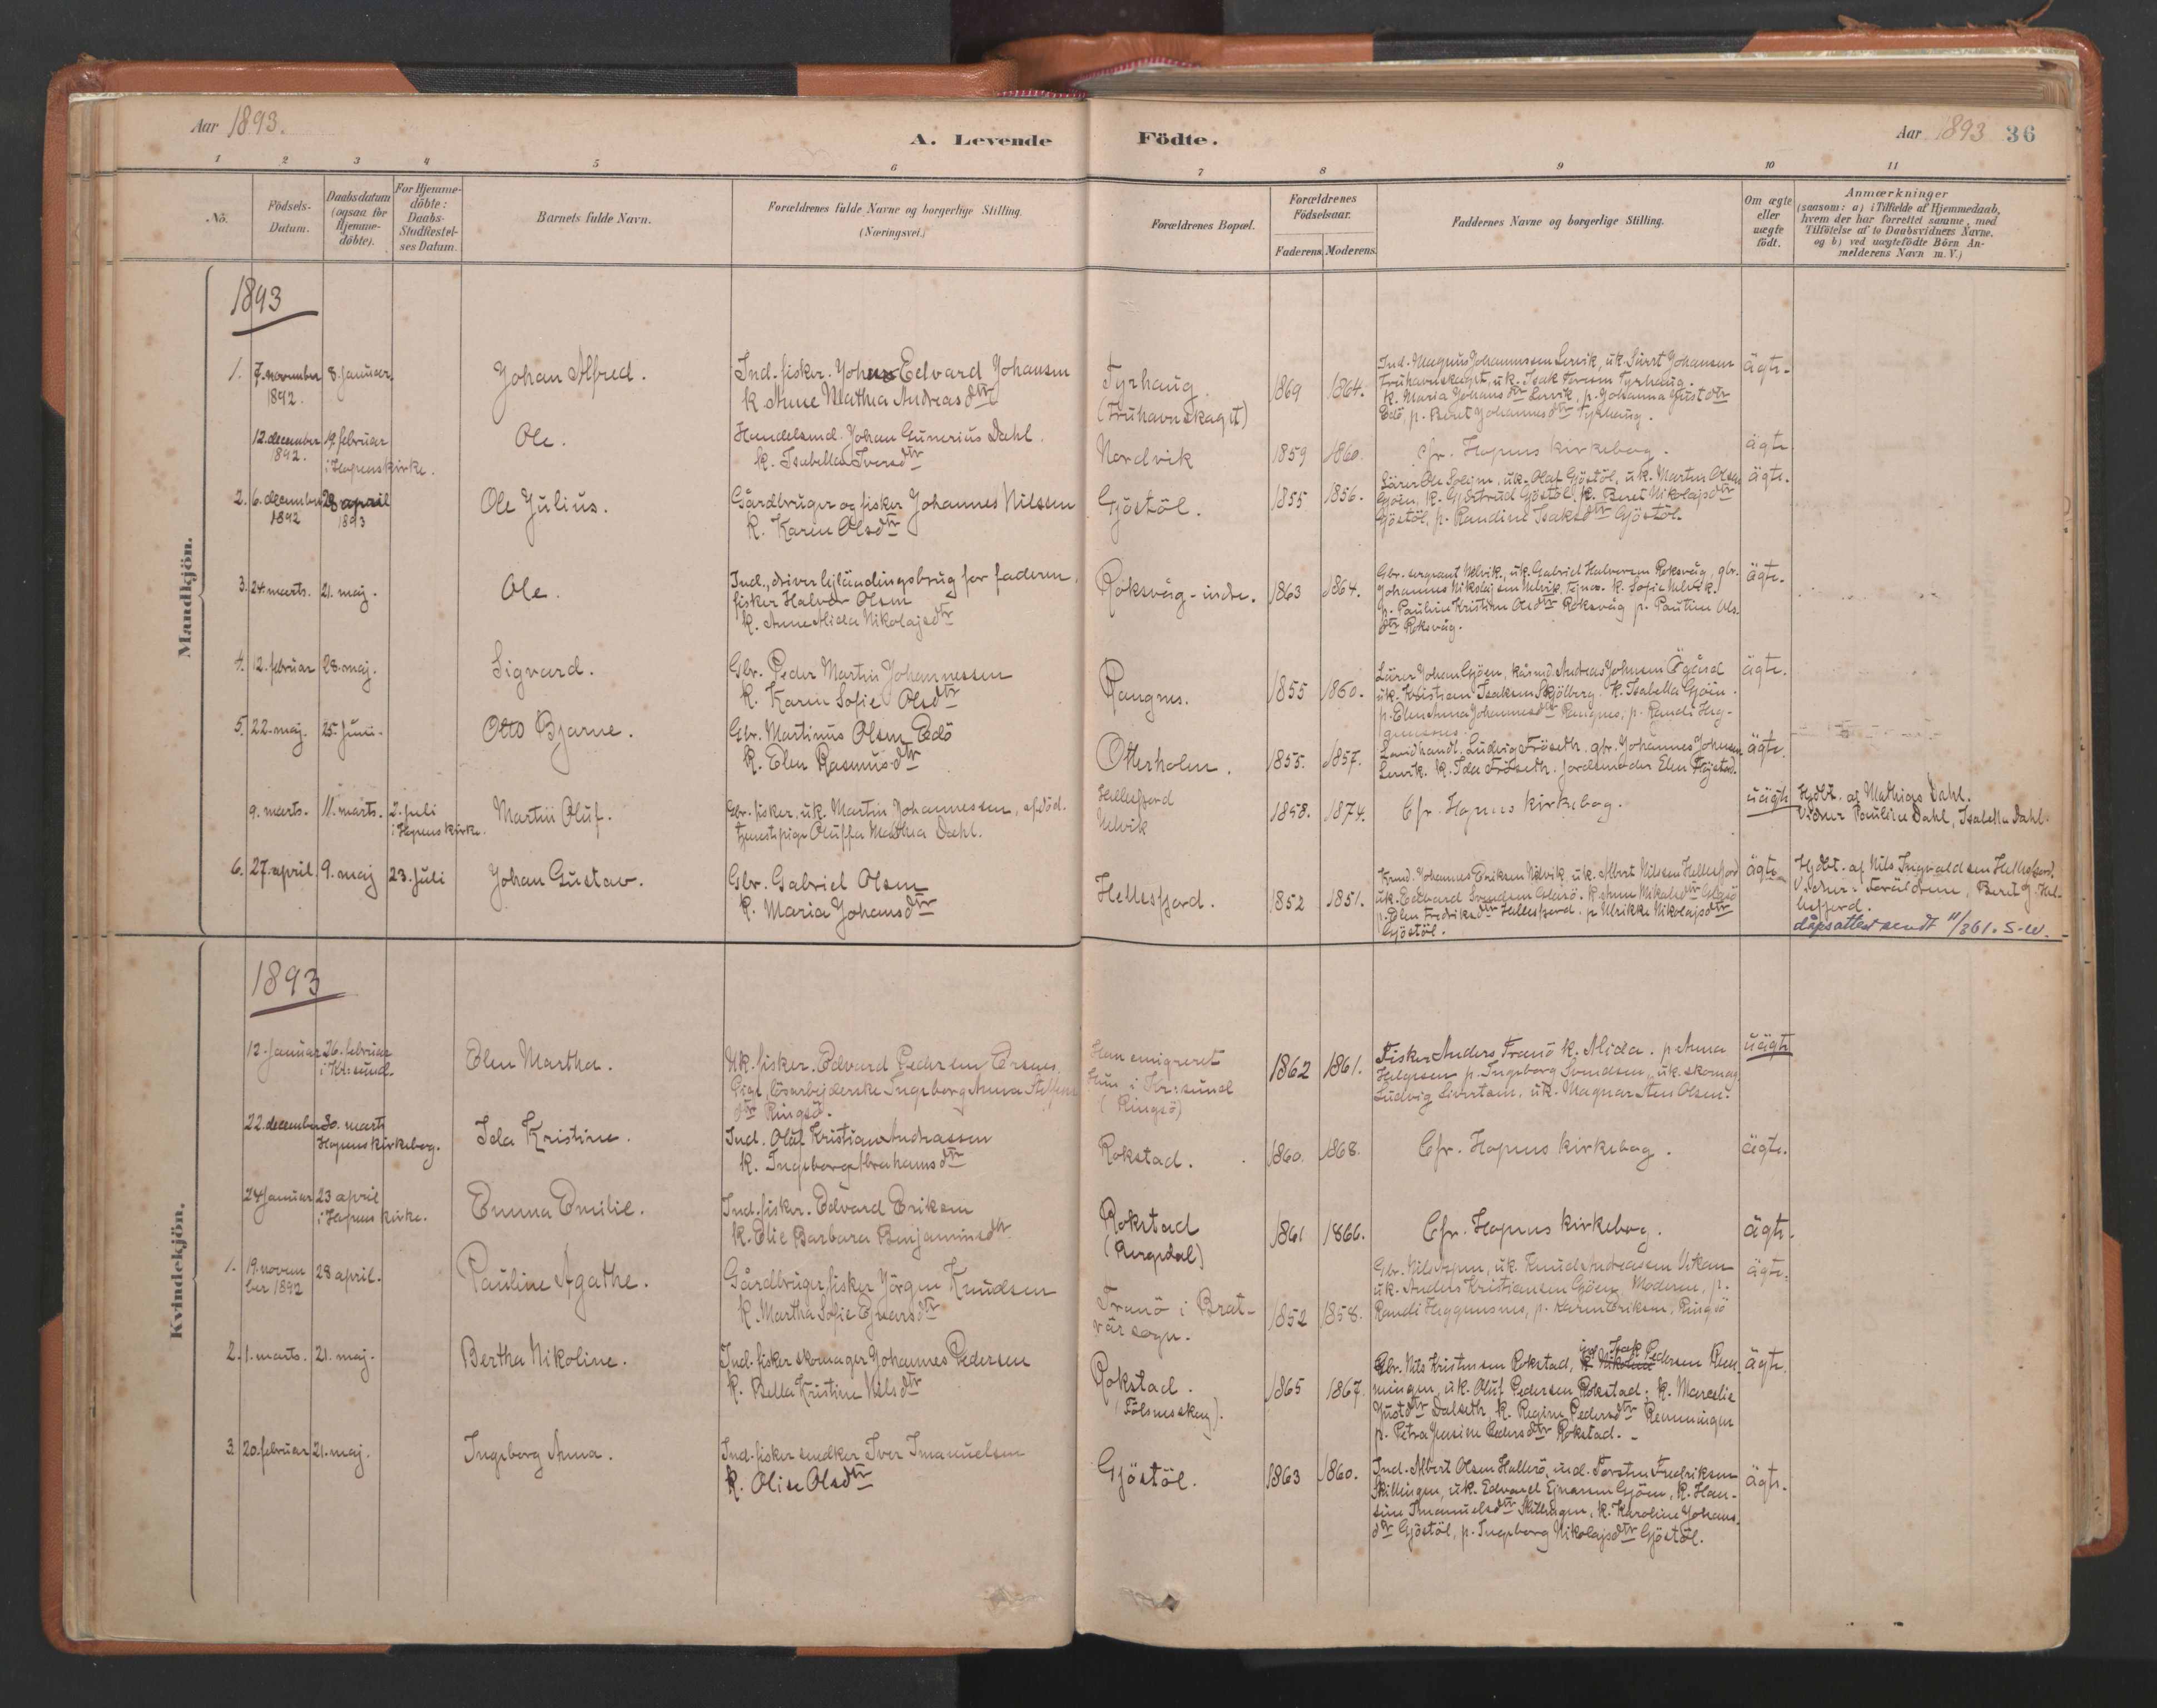 Aar 1893.
A. Levende Födte.
Aar 1893 36
1 2 3 4 5 6 7 8 9 10 11
No.
Födsels-Datum.
Daabsdatum (ogsaa for Hjemme-döbte).
For Hjemme-döbte: Daabs-Stadfæstel-ses Datum.
Barnets fulde Navn.
Forældrenes fulde Navne og borgerlige Stilling. (Næringsvei.)
Forældrenes Bopæl.
Forældrenes Födselsaar.
Faderens. Moderens.
Faddernes Navne og borgerlige Stilling.
Om ægte eller uægte födt.
Anmærkninger
(saasom: a) i Tilfælde af Hjemmedaab,
hvem der har forrettet samme, med
Tilföielse af to Daabsvidners Navne,
og b) ved uægtefödte Börn An-
melderens Navn m. V.)
Mandkjön.
1893
1. 7. november 1892. 8. januar.
Johan Alfred.
Ind. fisker. Johan Edvard Johansen
k Anne Mathea Andreasdtr
Tyrhaug
(Fruhavnskaget)
1869 1864.
Ind. Magnus Johannessen Lervik, uk. Sivert Johansen
Fruhavnskaget, uk. Isak Tyrhaug.
k. Maria Johansdtr Lervik, p. Johanna
Edö, p. Beret Johannesdtr Tyrhaug.
ägte.
12. december 1892. 19. februar i Hopens kirke.
Ole.
Handelsmd. Johan Gunerius Dahl.
k. Isabella Iversdtr
Nordvik
1859 1860.
Cfr. Hopens kirkebog.
ägte.
2. 6. december 1892 28 april 1893
Ole Julius.
Gårdbruger og fisker Johannes Nilsen
k. Karen Olsdtr
Gjöstöl.
1855 1856.
Lärer Ole Soleim, uk. Olaf Gjöstöl, uk. Martin Olsen
Gjöen, k. Gjertrud Gjöstöl, k. Beret Nikolajsdtr
Gjöstöl, p. Randine Isaksdtr Gjöstöl.
ägte.
3. 24. marts. 21. maj.
Ole.
Ind., driver lejländingsbrug for faderen,
fisker Halvor Olsen
k. Anne Alida Nikolajsdtr
Roksvåg-indre.
1863 1864.
Gbr. sergeant Nelvik, uk. Gabriel Halvorsen Roksvåg, gbr.
Johannes Nikolajsen Nelvik, k. Sofie Nelvik.
p. Pauline Kristine Olsdtr Roksvåg p. Pauline Ols-
dtr Roksvåg.
ägte.
4. 12. februar 28. maj.
Sigvard.
Gbr. Peder Martin Johannessen
k. Karen Sofie Olsdtr
Rangnes.
1855 1860.
Lärer Johan Gjöen, kårmd. Andreas Johnsen Ögård
uk. Kristian Isaksen Skjölberg. k. Isabella Gjöen.
p. Elen Anna Johannesdtr Rangnes, p. Randi Heg-
ägte.
5. 22. maj. 25. juni.
Otto Bjarne.
Gbr. Martinus Olsen Edö
k. Elen Rasmusdtr
Otterholm.
1855. 1857.
Landhandl. Ludvig Fröseth, gbr. Johannes Johnsen
Lervik. k. Ida Fröseth, jordemoder Elen
ägte.
9. marts. 11. marts. 2. juli i Hopens kirke.
Martin Oluf.
Gbr. fisker, uk. Martin Johannessen, afdöd.
tjenestpige Oluffa Mathea Dahl.
Hellesfjord
Nelvik
1858. 1874.
Cfr. Hopens kirkebog.
uägte
Hjdbt. af Mathias Dahl.
Vidner Pauline Dahl, Isabella Dahl.
6. 27. april. 9. maj 23. juli
Johan Gustav.
Gbr. Gabriel Olsen
k. Maria Johansdtr
Hellesfjord.
1852 1851.
Johannes Eriksen Nelvik uk. Albert Nilsen Hellesfjord
uk. Edvard Svendsen k. Anne
p. Elen Fredriksdtr Hellesfjord. p Ulrikke Nikolajsdtr
Gjöstöl.
ägte
Hjdbt. af Nils Ingvaldsen Hellesfjord.
Vidner: Foräldrene, Beret J. Hel-
lesfjord.
dåpsattest sendt 11/3 61. S.W.
Kvindekjön.
1893
12. januar 26. februar i Kr:sund.
Elen Martha.
Uk. fisker. Edvard Pedersen
Pige, lösarbejderske Ingeborg Anna Steffens-
dtr Ringsö.
Han emigreret
Hun i Kr:sund
(Ringsö)
1862 1861.
Fisker Anders Tranö k. Alida. p Anna
Helgesen p. Ingeborg Svendsen, uk. skomag.
Ludvig uk. Magnar Sten Olsen.
uägte
22. december 30. marts Hopens kirkebog.
Ida Kristine.
Ind. Oluf Kristian Andreassen
k. Ingeborg Abrahamsdtr
Rokstad.
1860. 1868.
Cfr. Hopens kirkebog.
ägte.
24 januar 23 april i Hopens kirke.
Emma Emilie.
Ind. fisker. Edvard Eriksen
k. Elie Barbara Benjaminsdtr.
Rokstad
(Bergsdal)
1861 1866.
Cfr. Hopens kirkebog.
ägte.
1. 19. november 1892 28 april.
Pauline Agathe.
Gårdbruger, fisker Jörgen Knudsen
k. Martha Sofie Ejnarsdtr
Tranö i Brat-
vär sogn.
1852 1858.
Gbr. Nils uk. Knud Andreassen
uk. Anders Kristiansen Gjöen Moderen, p.
Randi Heggemsnes, p. Karen Eriksen, Ringsö
ägte.
2. 1. marts. 21. maj.
Bertha Nikoline.
Ind. fisker skomager Johannes Pedersen
k. Bella Kristine Nilsdtr
Rokstad.
(Fölsnesskag).
1865 1867.
Gbr. Nils Kristensen Rokstad, Isak Pedersen Rem-
mingen, uk. Oluf Pedersen Rokstad; k. Marselie
Justdtr Dalseth k. Regine Pedersdtr Remmingen
p. Petra Jensine Pedersdtr Rokstad.
ägte.
3. 20. februar 21. maj.
Ingeborg Anna.
Ind. fisker snedker Iver Imanuelsen
k. Olise Olsdtr
Gjöstöl.
1863 1860.
Ind. Albert Olsen Hallerö, ind. Torsten Fredriksen
Skillingen, uk. Edvard Ejnarsen Gjöen, k. Han-
sine Imanuelsdtr Skillingen, k. Karoline Johans-
dtr Gjöstöl, p. Ingeborg Nikolajsdtr Gjöstöl.
ägte.